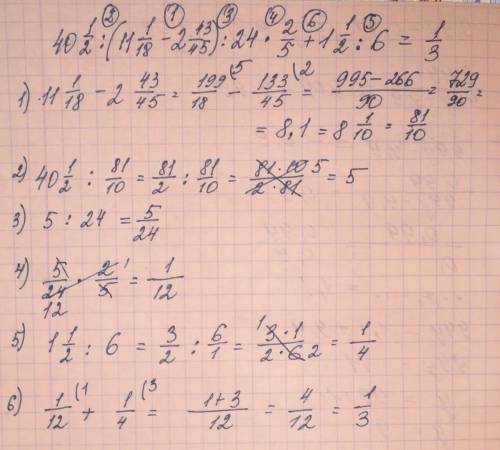 ② ① ③ ④ ⑥ ⑤
40 1/2 : (11 1/18 - 2 43/45) : 24 · 2/5 + 1 1/2 : 6 = 1/3
1) 11 1/18 - 2 43/45 = 199/18 (5 - 133/45 (2 = 995-266/90 = 729/90 =
= 8,1 = 8 1/10 = 81/10
2) 40 1/2 : 81/10 = 81/2 : 81/10 = 81·10/2·81 5 = 5
3) 5 : 24 = 5/24
4) 5/24 · 2/5 = 1/12
12 1
5) 1 1/2 : 6 = 3/2 : 6/1 = 1 3·1/2·6 2 = 1/4
6) 1/12 (1 + 1/4 (3 = 1+3/12 = 4/12 = 1/3